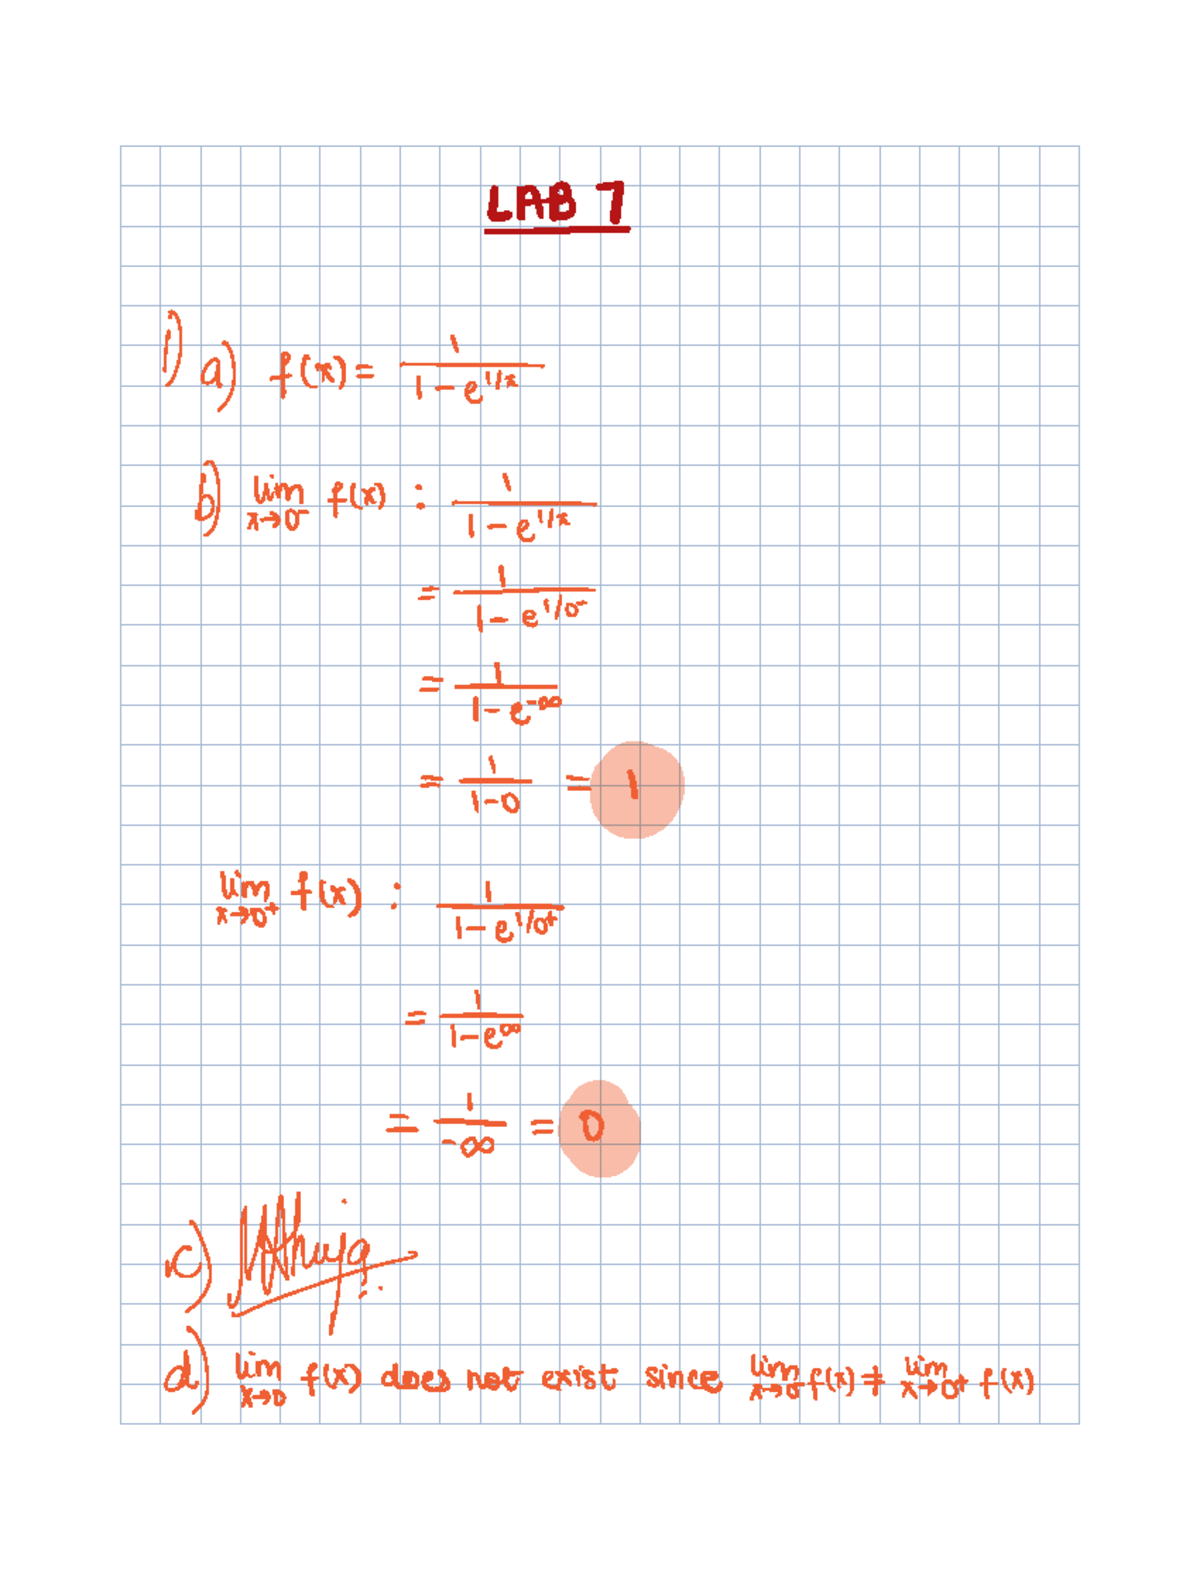 LAB 7
1) a) f(x) = 1/(1 - e^(1/x))
b) lim x→0⁻ f(x) : 1/(1 - e^(1/x))
= 1/(1 - e^(1/0⁻))
= 1/(1 - e^(-∞))
= 1/(1-0) = 1
lim x→0⁺ f(x) : 1/(1 - e^(1/0⁺))
= 1/(1 - e^∞)
= 1/-∞ = 0
c)
d) lim x→0 f(x) does not exist since lim x→0⁻ f(x) ≠ lim x→0⁺ f(x)